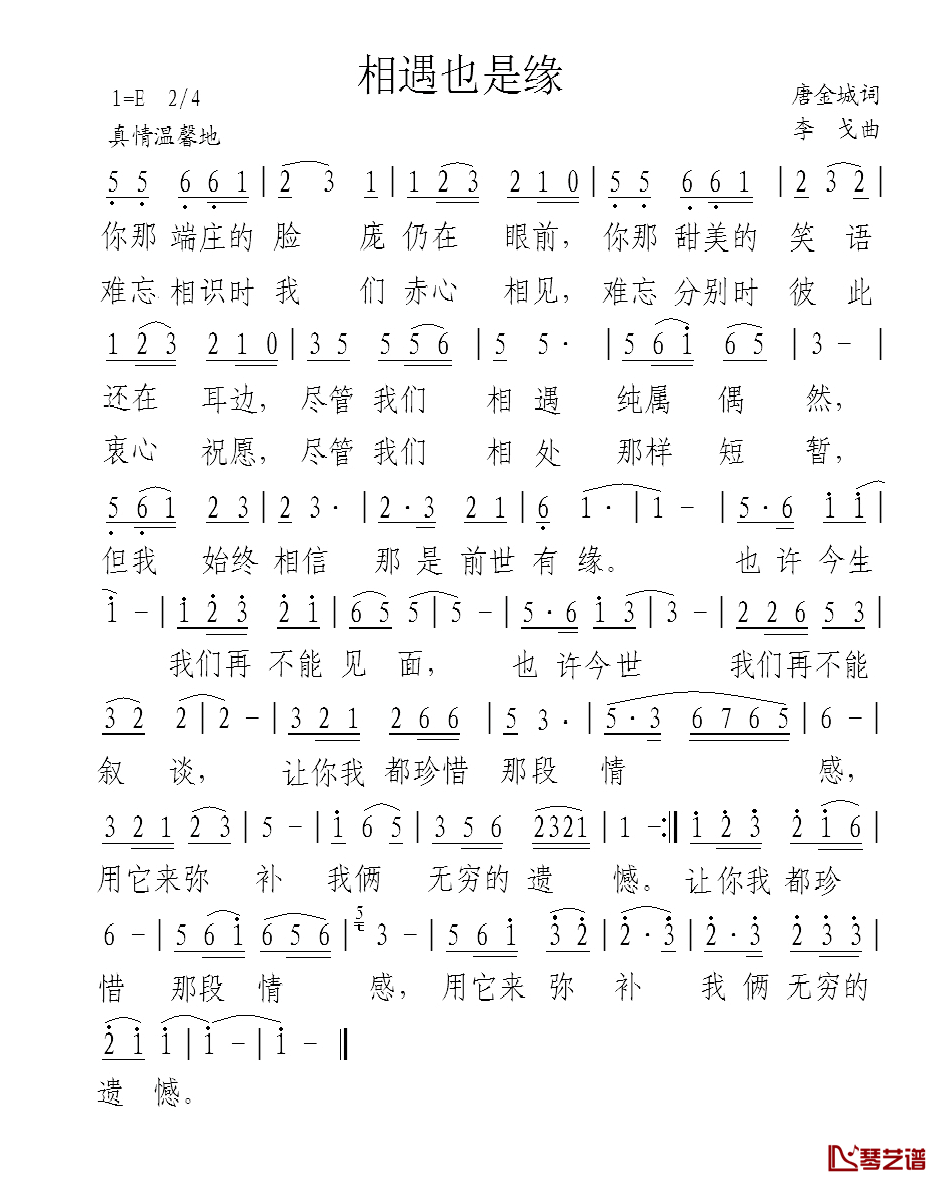 相遇也是缘
1=E 2/4 唐金城词
真情温馨地 李 戈曲
5 5 6 6 1 | 2 3 1 | 1 2 3 2 1 0 | 5 5 6 6 1 | 2 3 2 |
你那 端庄的 脸 庞 仍在 眼前，你那 甜美的 笑 语
难忘 相识时 我 们 赤心 相见，难忘 分别时 彼 此
1 2 3 2 1 0 | 3 5 5 5 6 | 5 5· | 5 6 i 6 5 | 3 - |
还在 耳边，尽管 我们 相 遇 纯属 偶 然，
衷心 祝愿，尽管 我们 相 处 那样 短 暂，
5 6 1 2 3 | 2 3· | 2·3 2 1 | 6 1· | 1 - | 5·6 i i |
但我 始终 相信 那 是 前世 有 缘。 也 许 今生
i - | i 2 3 2 i | 6 5 5 | 5 - | 5·6 i 3 | 3 - | 2 2 6 5 3 |
我们再 不能 见 面， 也 许今 世 我们再 不能
3 2 2 | 2 - | 3 2 1 2 6 6 | 5 3· | 5·3 6 7 6 5 | 6 - |
叙 谈， 让你我 都珍惜 那段 情 感，
3 2 1 2 3 | 5 - | i 6 5 | 3 5 6 2321 | 1 -:‖ i 2 3 2 i 6 |
用它来弥 补 我俩 无穷的 遗 憾。 让你我 都珍
6 - | 5 6 i 6 5 6 | 5 3 - | 5 6 i 3 2 | 2·3 | 2·3 2 3 3 |
惜 那段 情 感， 用它来 弥 补 我 俩 无穷的
2 i i | i - | i - ‖
遗 憾。
琴艺谱